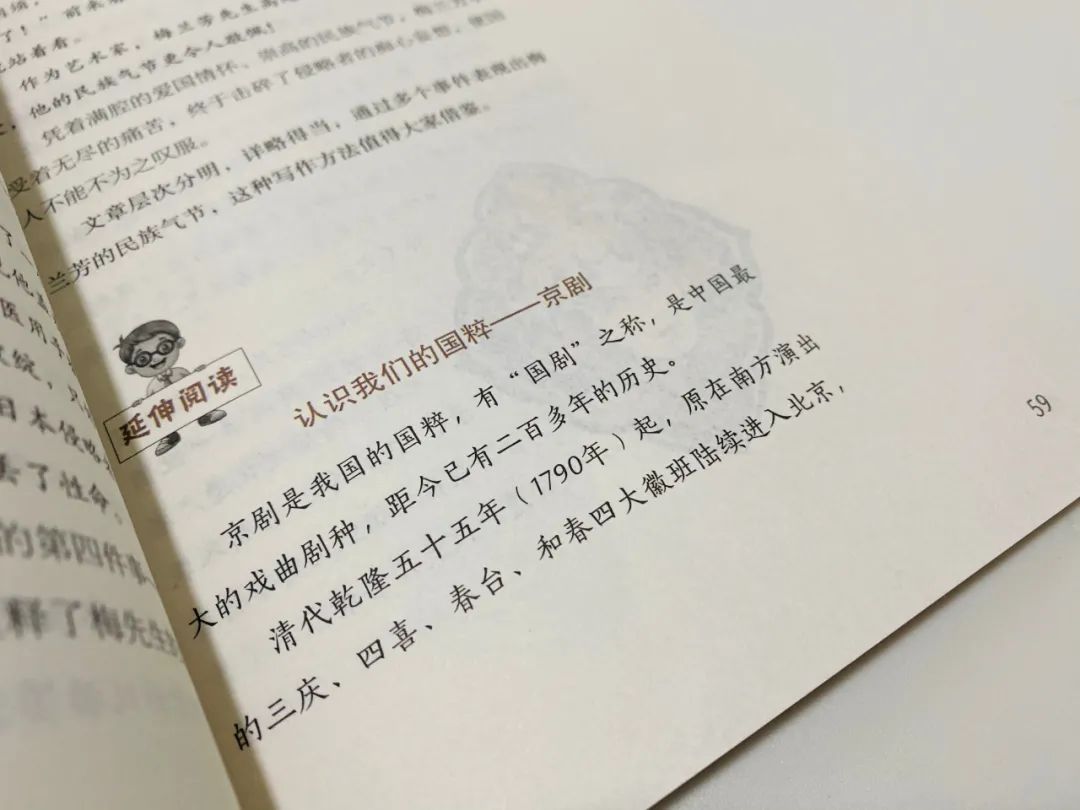 了！”前来
站着看。
作为艺术家，梅兰芳先生高
他的民族气节更令人敬佩！
凭着满腔的爱国情怀、崇高的民族气节，梅兰芳
受着无尽的痛苦，终于击碎了侵略者的痴心妄想，使国
人不能不为之叹服。
文章层次分明，详略得当，通过多个事件表现出梅
兰芳的民族气节，这种写作方法值得大家借鉴。
延伸阅读
认识我们的国粹——京剧
京剧是我国的国粹，有“国剧”之称，是中国最
大的戏曲剧种，距今已有二百多年的历史。
清代乾隆五十五年（1790年）起，原在南方演出
的三庆、四喜、春台、和春四大徽班陆续进入北京，
59
了一
医用
日本侵略
丢了性命。
的第四件事
样了梅先生